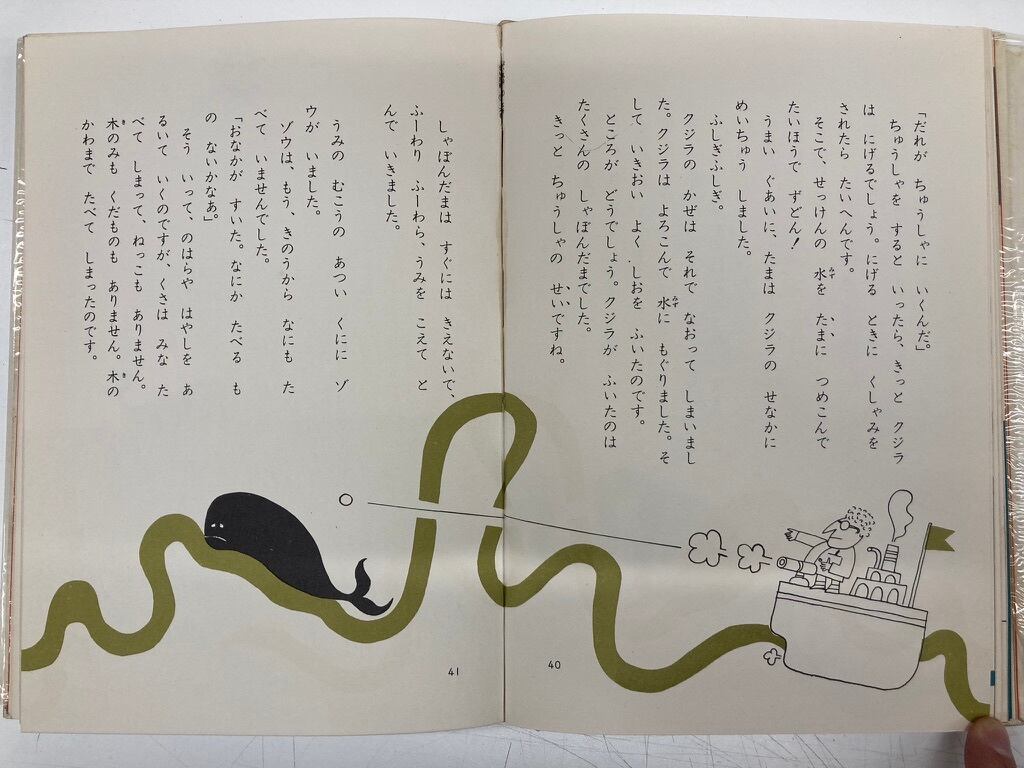 「だれが ちゅうしゃに いくんだ。」
ちゅうしゃを すると いったら、きっと クジラ
は にげるでしょう。にげる ときに くしゃみを
されたら たいへんです。
そこで、せっけんの 水を たまに つめこんで
たいほうで ずどん!
うまい ぐあいに、たまは クジラの せなかに
めいちゅう しました。
ふしぎふしぎ。
クジラの かぜは それで なおって しまいまし
た。クジラは よろこんで 水に もぐりました。そ
して いきおい よく しおを ふいたのです。
ところが どうでしょう。クジラが ふいたのは
たくさんの しゃぼんだまでした。
きっと ちゅうしゃの せいですね。
40
しゃぼんだまは すぐには きえないで、
ふーわり ふーわら、うみを こえて と
んで いきました。
うみの むこうの あつい くにに ゾ
ウが いました。
ゾウは、もう、きのうから なにも た
べて いませんでした。
「おなかが すいた。なにか たべる も
の ないかなあ。」
そう いって、のはらや はやしを あ
るいて いくのですが、くさは みな た
べて しまって、ねっこも ありません。
木のみも くだものも ありません。木の
かわまで たべて しまったのです。
41